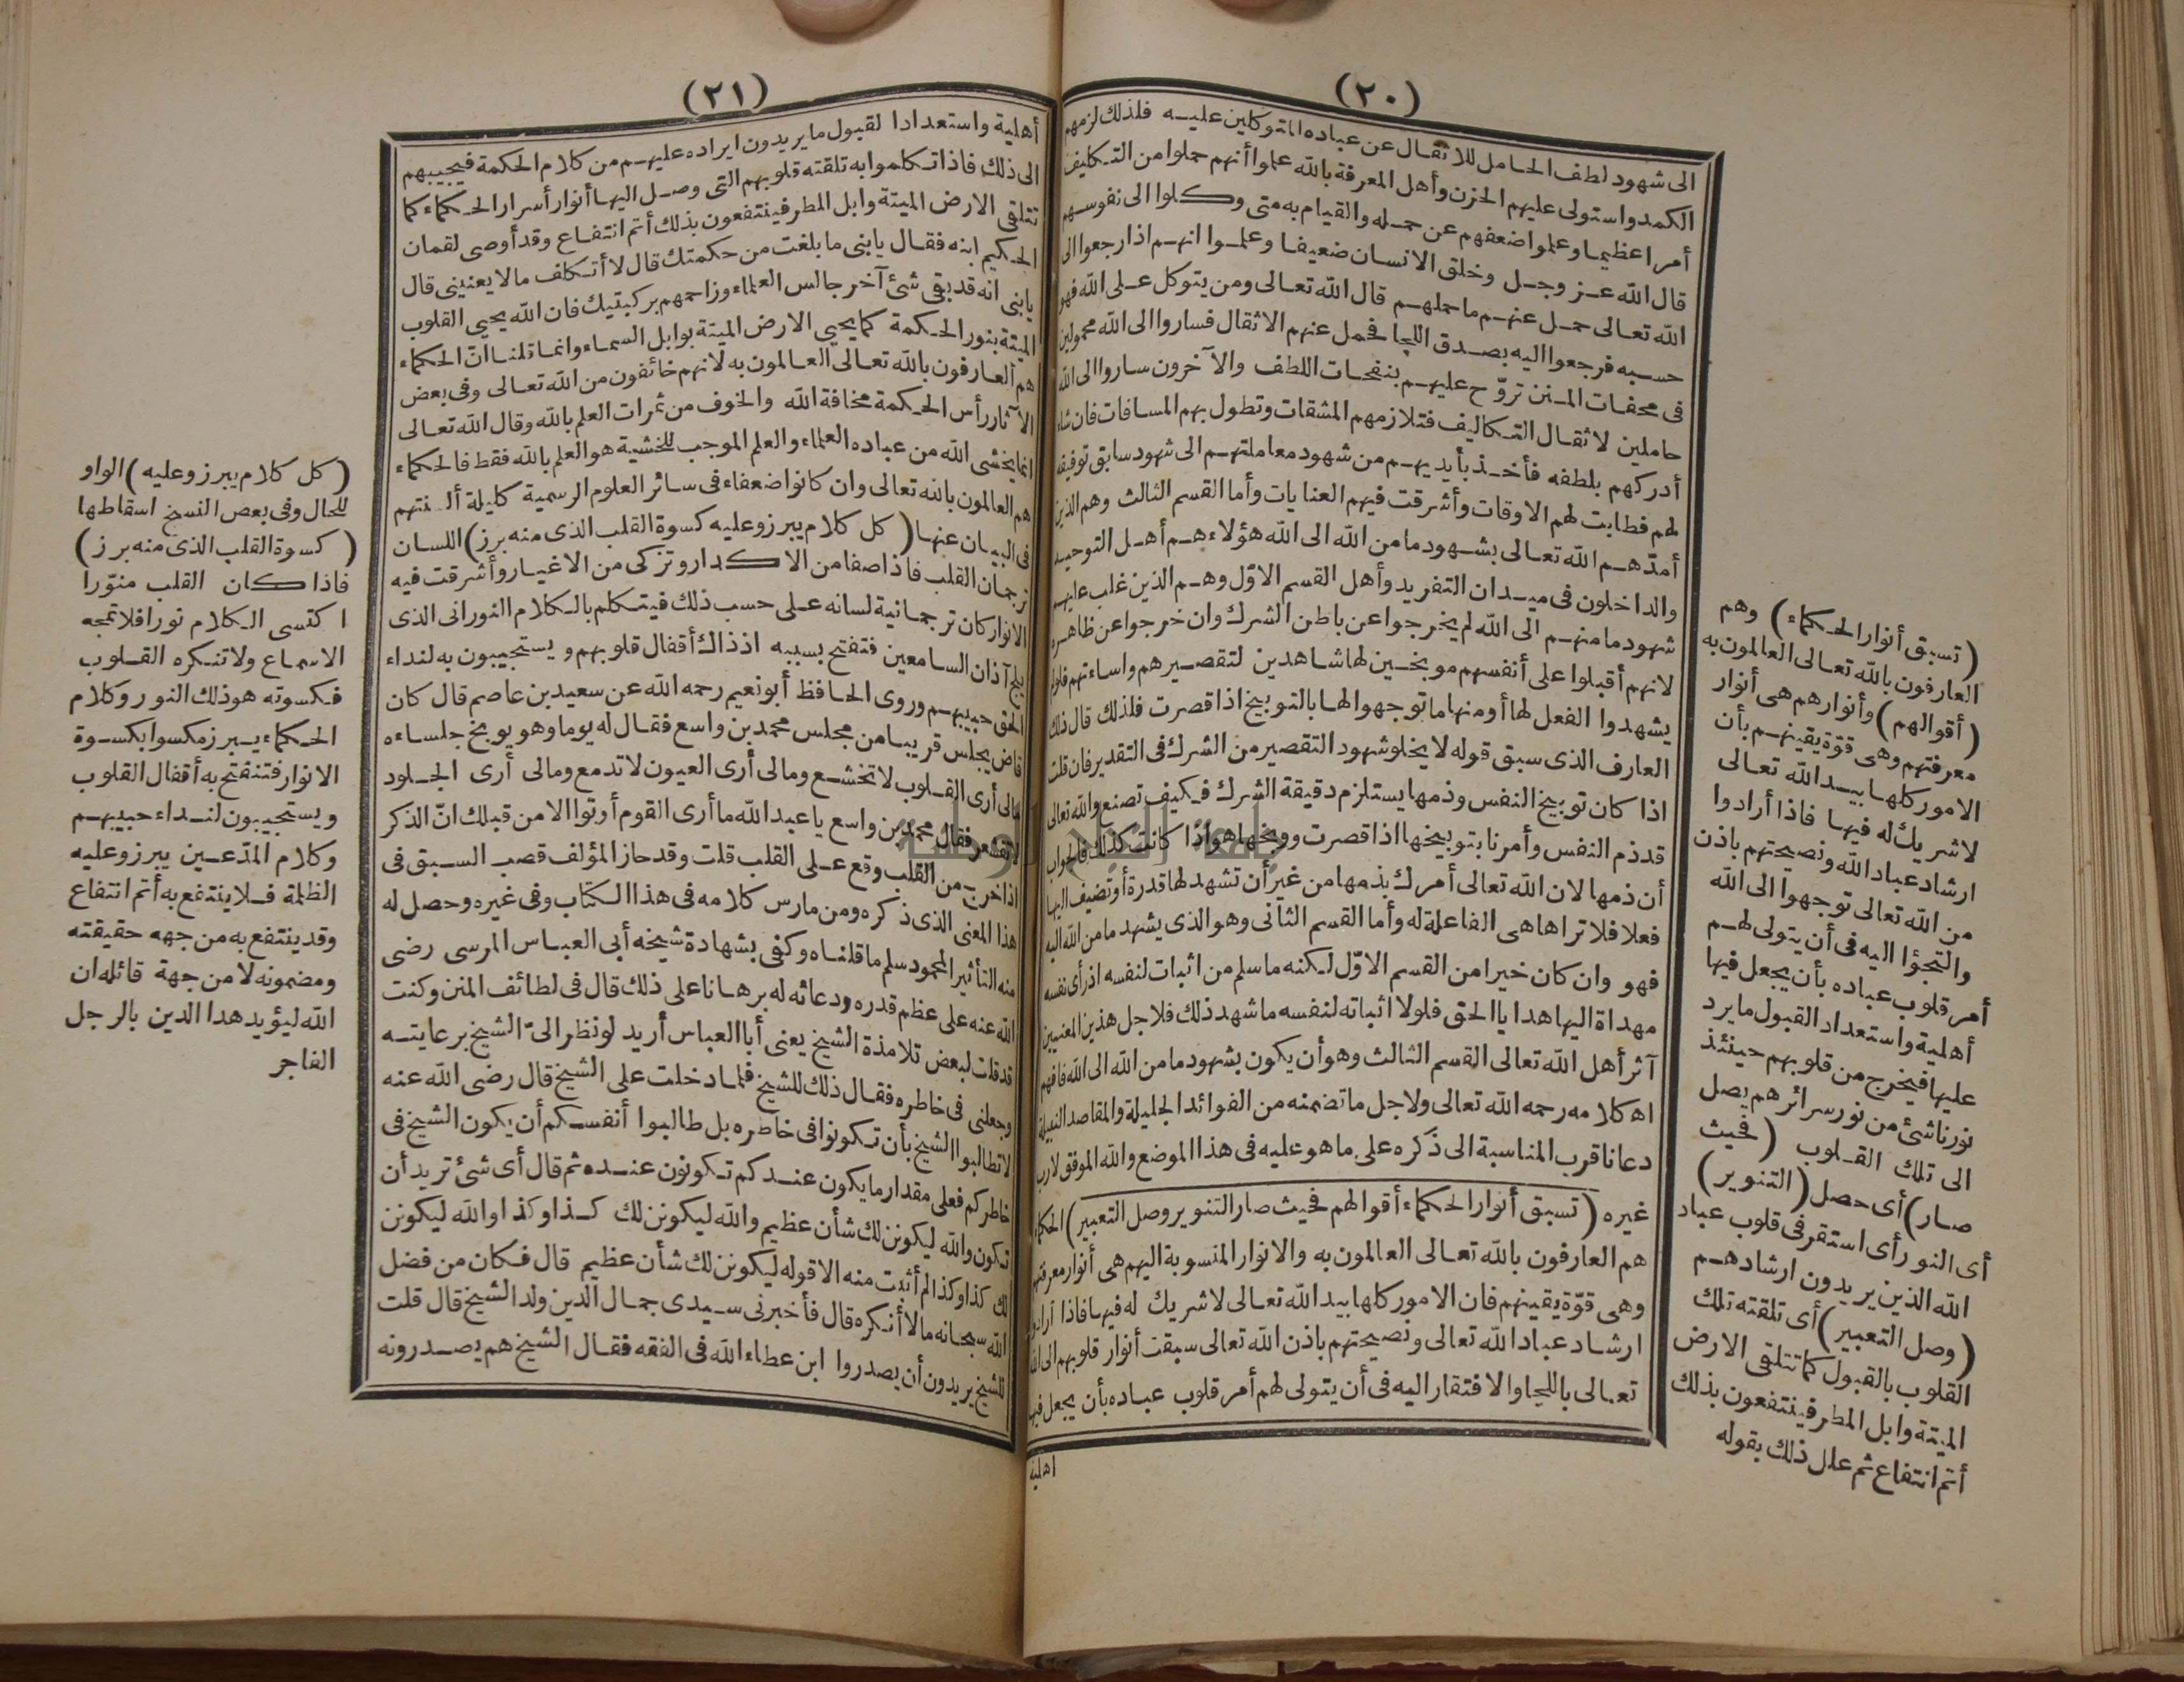 (٢٠)
الى شهود لطف الحامل للاثقال عن عباده المتوكلين عليه فلذلك لزمهم
الكمد واستولى عليهم الحزن وأهل المعرفة بالله علموا أنهم حملوا من التكليف
أمرا عظيما وعلموا ضعفهم عن حمله والقيام به متى وكلوا الى نفوسهم
قال الله عز وجل وخلق الانسان ضعيفا وعلموا انهم اذا رجعوا الى
الله تعالى حمل عنهم ما حملهم قال الله تعالى ومن يتوكل على الله فهو
حسبه فرجعوا اليه بصدق اللجا فحمل عنهم الاثقال فساروا الى الله محمولين
فى محفات المنن تروّح عليهم بنفحات اللطف والآخرون ساروا الى الله
حاملين لاثقال التكاليف فتلازمهم المشقات وتطول بهم المسافات فان شاء
أدركهم بلطفه فأخذ بأيديهم من شهود معاملتهم الى شهود سابق توفيقه
لهم فطابت لهم الاوقات وأشرقت فيهم العنايات وأما القسم الثالث وهم الذين
أمدّهم الله تعالى بشهود ما من الله الى الله هؤلاء هم أهل التوحيد
والداخلون فى ميدان التفريد وأهل القسم الاوّل وهم الذين غلب عليهم
شهود ما منهم الى الله لم يخرجوا عن باطن الشرك وان خرجوا عن ظاهره
لانهم أقبلوا على أنفسهم موبخين لها شاهدين لتقصيرهم واساءتهم فلولم
يشهدوا الفعل لها أو منها ما توجهوا لها بالتوبيخ اذا قصرت فلذلك قال ذلك
العارف الذى سبق قوله لا يخلو شهود التقصير من الشرك فى التقدير فان قلت
اذا كان توبيخ النفس وذمها يستلزم دقيقة الشرك فكيف تصنع والله تعالى
قد ذم النفس وأمرنا بتوبيخها اذا قصرت ووبخها هو اذا كانت كذلك فالجواب
أن ذمها لان الله تعالى أمرك بذمها من غير أن تشهد لها قدرة أو تضيف اليها
فعلا فلا تراها هى الفاعلة له وأما القسم الثانى وهو الذى يشهد ما من الله اليه
فهو وان كان خيرا من القسم الاوّل لكنه ما سلم من اثبات لنفسه اذ رأى نفسه
مهداة اليها هدايا الحق فلولا اثباته لنفسه ما شهد ذلك فلاجل هذين المعنيين
آثر أهل الله تعالى القسم الثالث وهو أن يكون بشهود ما من الله الى الله فافهم
اه كلامه رحمه الله تعالى ولاجل ما تضمنه من الفوائد الجليلة والمقاصد النبيلة
دعانا قرب المناسبة الى ذكره على ما هو عليه فى هذا الموضع والله الموفق لا رب
غيره (تسبق أنوار الحكماء أقوالهم فحيث صار التنوير وصل التعبير) الحكماء
هم العارفون بالله تعالى العالمون به والانوار المنسوبة اليهم هى أنوار معرفتهم
وهى قوّة يقينهم فان الامور كلها بيد الله تعالى لا شريك له فيها فاذا أرادوا
ارشاد عباد الله تعالى ونصيحتهم باذن الله تعالى سبقت أنوار قلوبهم الى الله
تعالى باللجا والافتقار اليه فى أن يتولى لهم أمر قلوب عباده بأن يجعل فيها
اهلية
(تسبق أنوار الحكماء) وهم
العارفون بالله تعالى العالمون به
(أقوالهم) وأنوارهم هى أنوار
معرفتهم وهى قوّة يقينهم بأن
الامور كلها بيد الله تعالى
لا شريك له فيها فاذا أرادوا
ارشاد عباد الله ونصيحتهم باذن
من الله تعالى توجهوا الى الله
والتجؤا اليه فى أن يتولى لهم
أمر قلوب عباده بأن يجعل فيها
أهلية واستعداد القبول ما يرد
عليها فيخرج من قلوبهم حينئذ
نور ناشئ من نور سرائرهم يصل
الى تلك القلوب (فحيث
صار) أى حصل (التنوير)
أى النور أى استقر فى قلوب عباد
الله الذين يريدون ارشادهم
(وصل التعبير) أى تلقته تلك
القلوب بالقبول كما تتلقى الارض
الميتة وابل المطر فينتفعون بذلك
أتم انتفاع ثم علل ذلك بقوله
(٢١)
أهلية واستعدادا لقبول ما يريدون ايراده عليهم من كلام الحكمة فيجيبهم
الى ذلك فاذا تكلموا به تلقته قلوبهم التى وصل اليها أنوار أسرار الحكماء كما
تتلقى الارض الميتة وابل المطر فينتفعون بذلك أتم انتفاع وقد أوصى لقمان
الحكيم ابنه فقال يابنى ما بلغت من حكمتك قال لا أتكلف مالا يعنينى قال
يابنى انه قد بقى شئ آخر جالس العلماء وزاحمهم بركبتيك فان الله يحيى القلوب
الميتة بنور الحكمة كما يحيى الارض الميتة بوابل السماء وانما قلنا انّ الحكماء
هم العارفون بالله تعالى العالمون به لانهم خائفون من الله تعالى وفى بعض
الآثار رأس الحكمة مخافة الله والخوف من ثمرات العلم بالله وقال الله تعالى
انما يخشى الله من عباده العلماء والعلم الموجب للخشية هو العلم بالله فقط فالحكماء
هم العالمون بالله تعالى وان كانوا ضعفاء فى سائر العلوم الرسمية كليلة ألسنتهم
فى البيان عنها (كل كلام يبرز وعليه كسوة القلب الذى منه برز) اللسان
ترجمان القلب فاذا صفا من الاكدار وتزكى من الاغيار وأشرقت فيه
الانوار كان ترجمانية لسانه على حسب ذلك فيتكلم بالكلام النورانى الذى
يلج آذان السامعين فتفتح بسببه اذ ذاك أقفال قلوبهم ويستجيبون به لنداء
الحق حبيبهم وروى الحافظ أبو نعيم رحمه الله عن سعيد بن عاصم قال كان
قاض يجلس قريبا من مجلس محمد بن واسع فقال له يوما وهو يوبخ جلساءه
مالى أرى القلوب لا تخشع ومالى أرى العيون لا تدمع ومالى أرى الجلود
لا تقشعر فقال محمد بن واسع يا عبد الله ما أرى القوم أوتوا الا من قبلك انّ الذكر
اذا خرج من القلب وقع على القلب قلت وقد حاز المؤلف قصب السبق فى
هذا المعنى الذى ذكره ومن مارس كلامه فى هذا الكتاب وفى غيره وحصل له
منه التأثير المحمود سلم ما قلناه وكفى بشهادة شيخه أبى العباس المرسى رضى
الله عنه على عظم قدره ودعائه له برهانا على ذلك قال فى لطائف المنن وكنت
قد قلت لبعض تلامذة الشيخ يعنى أبا العباس أريد لو نظر الىّ الشيخ برعايته
وجعلنى فى خاطره فقال ذلك للشيخ فلما دخلت على الشيخ قال رضى الله عنه
لا تطالبوا الشيخ بأن تكونوا فى خاطره بل طالبوا أنفسكم أن يكون الشيخ فى
خاطركم فعلى مقدار ما يكون عندكم تكونون عنده ثم قال أى شئ تريد أن
تكون والله ليكونن لك شأن عظيم والله ليكونن لك كذا وكذا والله ليكونن
لك كذا وكذا لم أثبت منه الا قوله ليكونن لك شأن عظيم قال فكان من فضل
الله سبحانه مالا أنكره قال فأخبرنى سيدى جمال الدين ولد الشيخ قال قلت
للشيخ يريدون أن يصدروا ابن عطاء الله فى الفقه فقال الشيخ هم يصدرونه
(كل كلام يبرز وعليه) الواو
للحال وفى بعض النسخ اسقاطها
(كسوة القلب الذى منه برز)
فاذا كان القلب منوّرا
اكتسى الكلام نورا فلا تمجه
الاسماع ولا تنكره القلوب
فكسوته هو ذلك النور وكلام
الحكماء يبرز مكسوا بكسوة
الانوار فتنفتح به أقفال القلوب
ويستجيبون لنداء حبيبهم
وكلام المدّعين يبرز وعليه
الظلمة فلا ينتفع به أتم انتفاع
وقد ينتفع به من جهه حقيقته
ومضمونه لا من جهة قائله ان
الله ليؤيد هذا الدين بالرجل
الفاجر